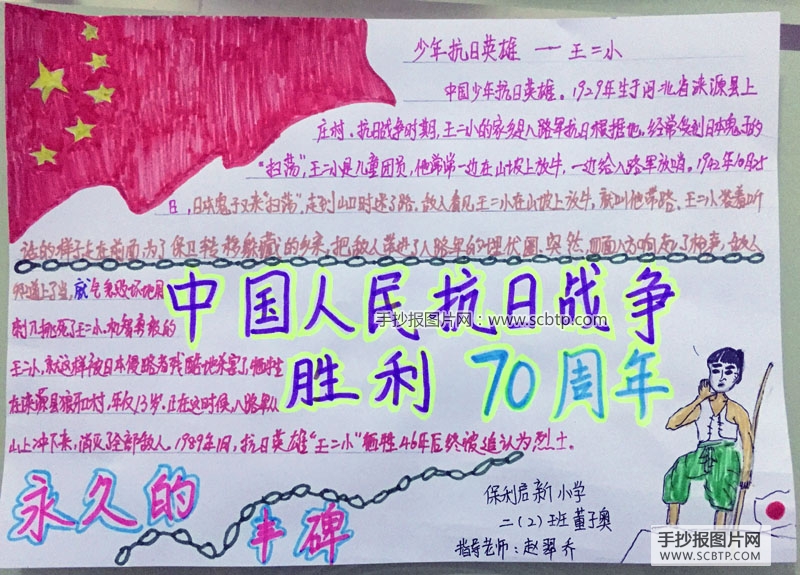 少年抗日英雄 — 王二小
中国少年抗日英雄。1929年生于河北省涞源县上
庄村。抗日战争时期,王二小的家乡是八路军抗日根据地,经常受到日本鬼子的
"扫荡",王二小是儿童团员,他常常一边在山坡上放牛,一边给八路军放哨。1942年10月25
日,日本鬼子又来"扫荡",走到山口时迷了路。敌人看见王二小在山坡上放牛,就叫他带路。王二小装着听
话的样子走在前面,为了保卫转移躲藏的乡亲,把敌人带进了八路军的埋伏圈。突然,四面八方响起了枪声,敌人
知道上了当,就气急败坏地用
刺刀挑死了王二小。机智勇敢的
王二小,就这样被日本侵略者残酷地杀害了,牺牲
在涞源县狼牙口村,年仅13岁。正在这时候,八路军从
山上冲下来,消灭了全部敌人。1989年1月,抗日英雄"王二小"牺牲46年后终被追认为烈士。
中国人民抗日战争
手抄报图片网:www.scbtp.com
胜利 70周年
永久的
丰碑
保利启新小学
二(2)班 董子奥
指导老师:赵翠乔
手抄报图片网
WWW.SCBTP.COM